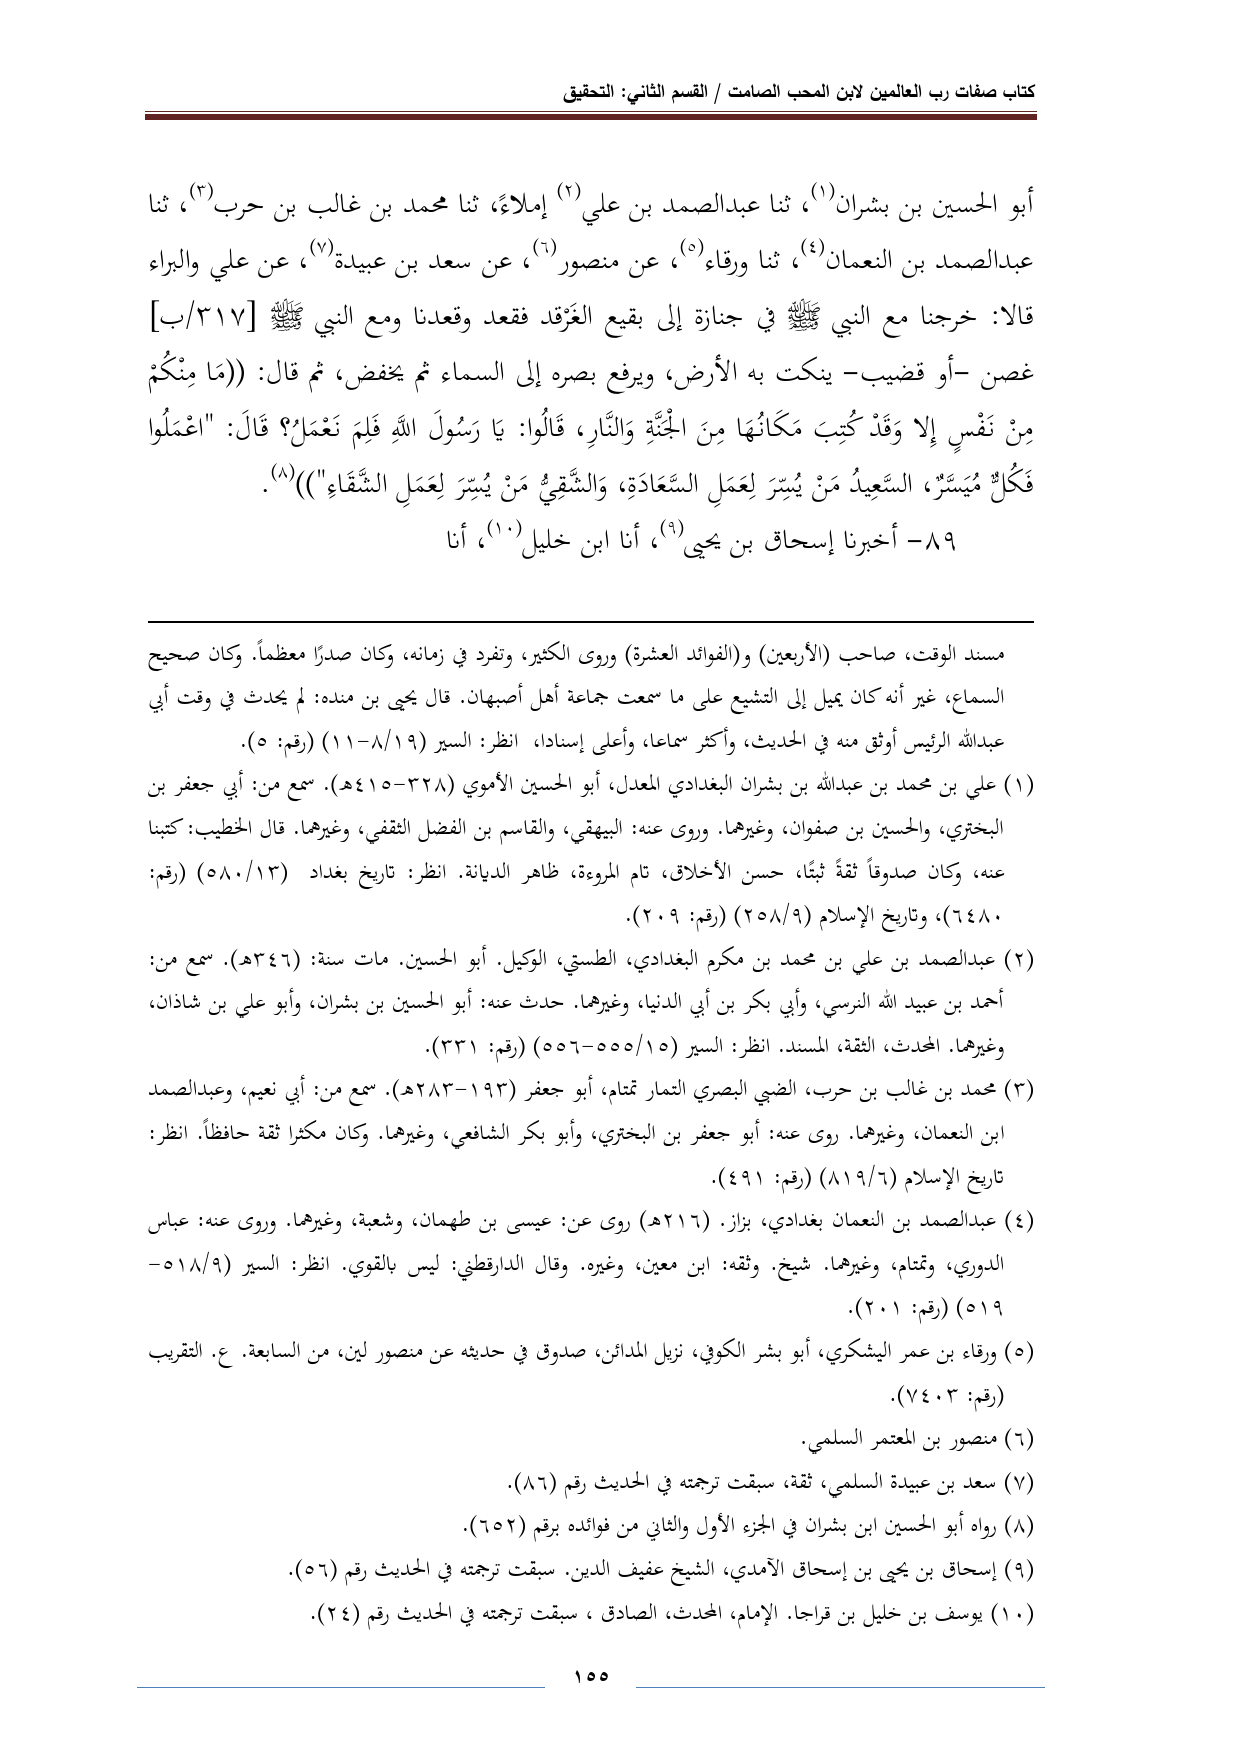 كتاب صفات رب العالمين لابن المحب الصامت / القسم الثاني: التحقيق
أبو الحسين بن بشران(١)، ثنا عبدالصمد بن علي(٢) إملاءً، ثنا محمد بن غالب بن حرب(٣)، ثنا
عبدالصمد بن النعمان(٤)، ثنا ورقاء(٥)، عن منصور(٦)، عن سعد بن عبيدة(٧)، عن علي والبراء
قالا: خرجنا مع النبي ﷺ في جنازة إلى بقيع الغَرْقد فقعد وقعدنا ومع النبي ﷺ [٣١٧/ب]
غصن -أو قضيب- ينكت به الأرض، ويرفع بصره إلى السماء ثم يخفض، ثم قال: ((مَا مِنْكُمْ
مِنْ نَفْسٍ إِلا وَقَدْ كُتِبَ مَكَانُهَا مِنَ الْجَنَّةِ وَالنَّارِ، قَالُوا: يَا رَسُولَ اللَّهِ فَلِمَ نَعْمَلُ؟ قَالَ: "اعْمَلُوا
فَكُلٌّ مُيَسَّرٌ، السَّعِيدُ مَنْ يُسِّرَ لِعَمَلِ السَّعَادَةِ، وَالشَّقِيُّ مَنْ يُسِّرَ لِعَمَلِ الشَّقَاءِ"))(٨).
٨٩- أخبرنا إسحاق بن يحيى(٩)، أنا ابن خليل(١٠)، أنا
مسند الوقت، صاحب (الأربعين) و(الفوائد العشرة) وروى الكثير، وتفرد في زمانه، وكان صدرًا معظماً. وكان صحيح
السماع، غير أنه كان يميل إلى التشيع على ما سمعت جماعة أهل أصبهان. قال يحيى بن منده: لم يحدث في وقت أبي
عبدالله الرئيس أوثق منه في الحديث، وأكثر سماعا، وأعلى إسنادا، انظر: السير (٨/١٩-١١) (رقم: ٥).
(١) علي بن محمد بن عبدالله بن بشران البغدادي المعدل، أبو الحسين الأموي (٣٢٨-٤١٥هـ). سمع من: أبي جعفر بن
البختري، والحسين بن صفوان، وغيرهما. وروى عنه: البيهقي، والقاسم بن الفضل الثقفي، وغيرهما. قال الخطيب: كتبنا
عنه، وكان صدوقاً ثقةً ثبتًا، حسن الأخلاق، تام المروءة، ظاهر الديانة. انظر: تاريخ بغداد (٥٨٠/١٣) (رقم:
٦٤٨٠)، وتاريخ الإسلام (٢٥٨/٩) (رقم: ٢٠٩).
(٢) عبدالصمد بن علي بن محمد بن مكرم البغدادي، الطستي، الوكيل. أبو الحسين. مات سنة: (٣٤٦هـ). سمع من:
أحمد بن عبيد الله النرسي، وأبي بكر بن أبي الدنيا، وغيرهما. حدث عنه: أبو الحسين بن بشران، وأبو علي بن شاذان،
وغيرهما. المحدث، الثقة، المسند. انظر: السير (٥٥٥/١٥-٥٥٦) (رقم: ٣٣١).
(٣) محمد بن غالب بن حرب، الضبي البصري التمار تمتام، أبو جعفر (١٩٣-٢٨٣هـ). سمع من: أبي نعيم، وعبدالصمد
ابن النعمان، وغيرهما. روى عنه: أبو جعفر بن البختري، وأبو بكر الشافعي، وغيرهما. وكان مكثرا ثقة حافظاً. انظر:
تاريخ الإسلام (٨١٩/٦) (رقم: ٤٩١).
(٤) عبدالصمد بن النعمان بغدادي، بزاز. (٢١٦هـ) روى عن: عيسى بن طهمان، وشعبة، وغيرهما. وروى عنه: عباس
الدوري، وتمتام، وغيرهما. شيخ. وثقه: ابن معين، وغيره. وقال الدارقطني: ليس بالقوي. انظر: السير (٥١٨/٩-
٥١٩) (رقم: ٢٠١).
(٥) ورقاء بن عمر اليشكري، أبو بشر الكوفي، نزيل المدائن، صدوق في حديثه عن منصور لين، من السابعة. ع. التقريب
(رقم: ٧٤٠٣).
(٦) منصور بن المعتمر السلمي.
(٧) سعد بن عبيدة السلمي، ثقة، سبقت ترجمته في الحديث رقم (٨٦).
(٨) رواه أبو الحسين ابن بشران في الجزء الأول والثاني من فوائده برقم (٦٥٢).
(٩) إسحاق بن يحيى بن إسحاق الآمدي، الشيخ عفيف الدين. سبقت ترجمته في الحديث رقم (٥٦).
(١٠) يوسف بن خليل بن قراجا. الإمام، المحدث، الصادق ، سبقت ترجمته في الحديث رقم (٢٤).
١٥٥